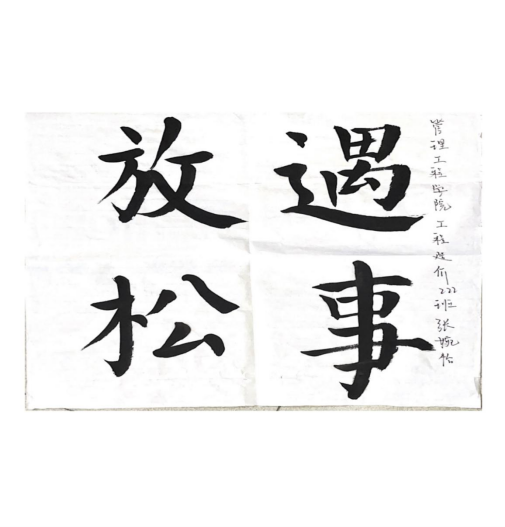 遇事
放松
管理工程学院工程造价222班张婉怡